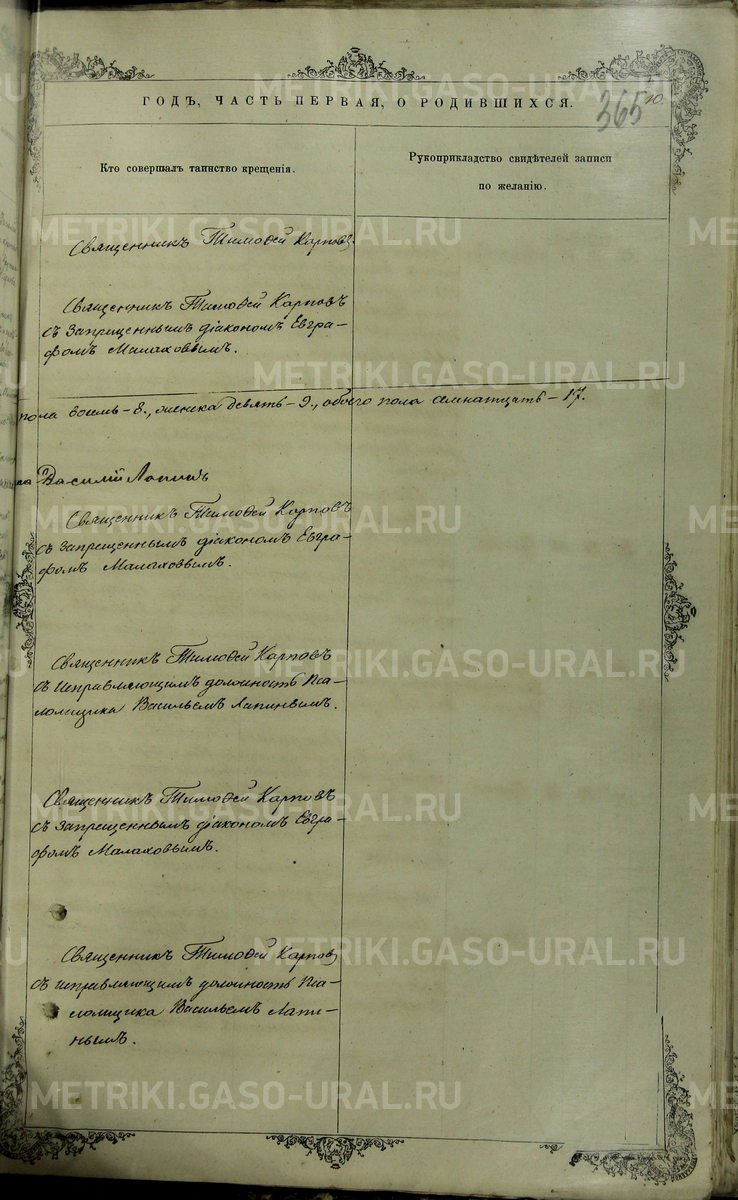 ГОДЪ, ЧАСТЬ ПЕРВАЯ, О РОДИВШИХСЯ.
365
10
Кто совершалъ таинство крещенія.
Рукоприкладство свидѣтелей записи
по желанію.
Священникъ Тимоѳей Карповъ.
Священникъ Тимоѳей Карповъ
съ запрещеннымъ діакономъ Евгра-
фомъ Малаховымъ.
пола восемь - 8., женска девять - 9., обоего пола семнатцать - 17.
Василій Лапинъ
Священникъ Тимоѳей Карповъ
съ запрещеннымъ діакономъ Евгра-
фомъ Малаховымъ.
Священникъ Тимоѳей Карповъ
съ исправляющимъ должность Пса-
ломщика Васильемъ Лапинымъ.
Священникъ Тимоѳей Карповъ
съ запрещеннымъ діакономъ Евгра-
фомъ Малаховымъ.
Священникъ Тимоѳей Карповъ
съ исправляющимъ должность Пса-
ломщика Васильемъ Лапи-
нымъ.
METRIKI.GASO-URAL.RU